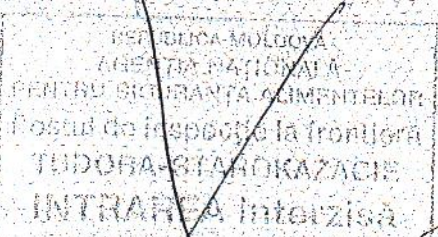 REPUBLICA MOLDOVA
AGENȚIA NAȚIONALĂ
PENTRU SIGURANȚA ALIMENTELOR
Postul de inspecție la frontieră
TUDORA-STAROKAZACIE
INTRAREA interzisă